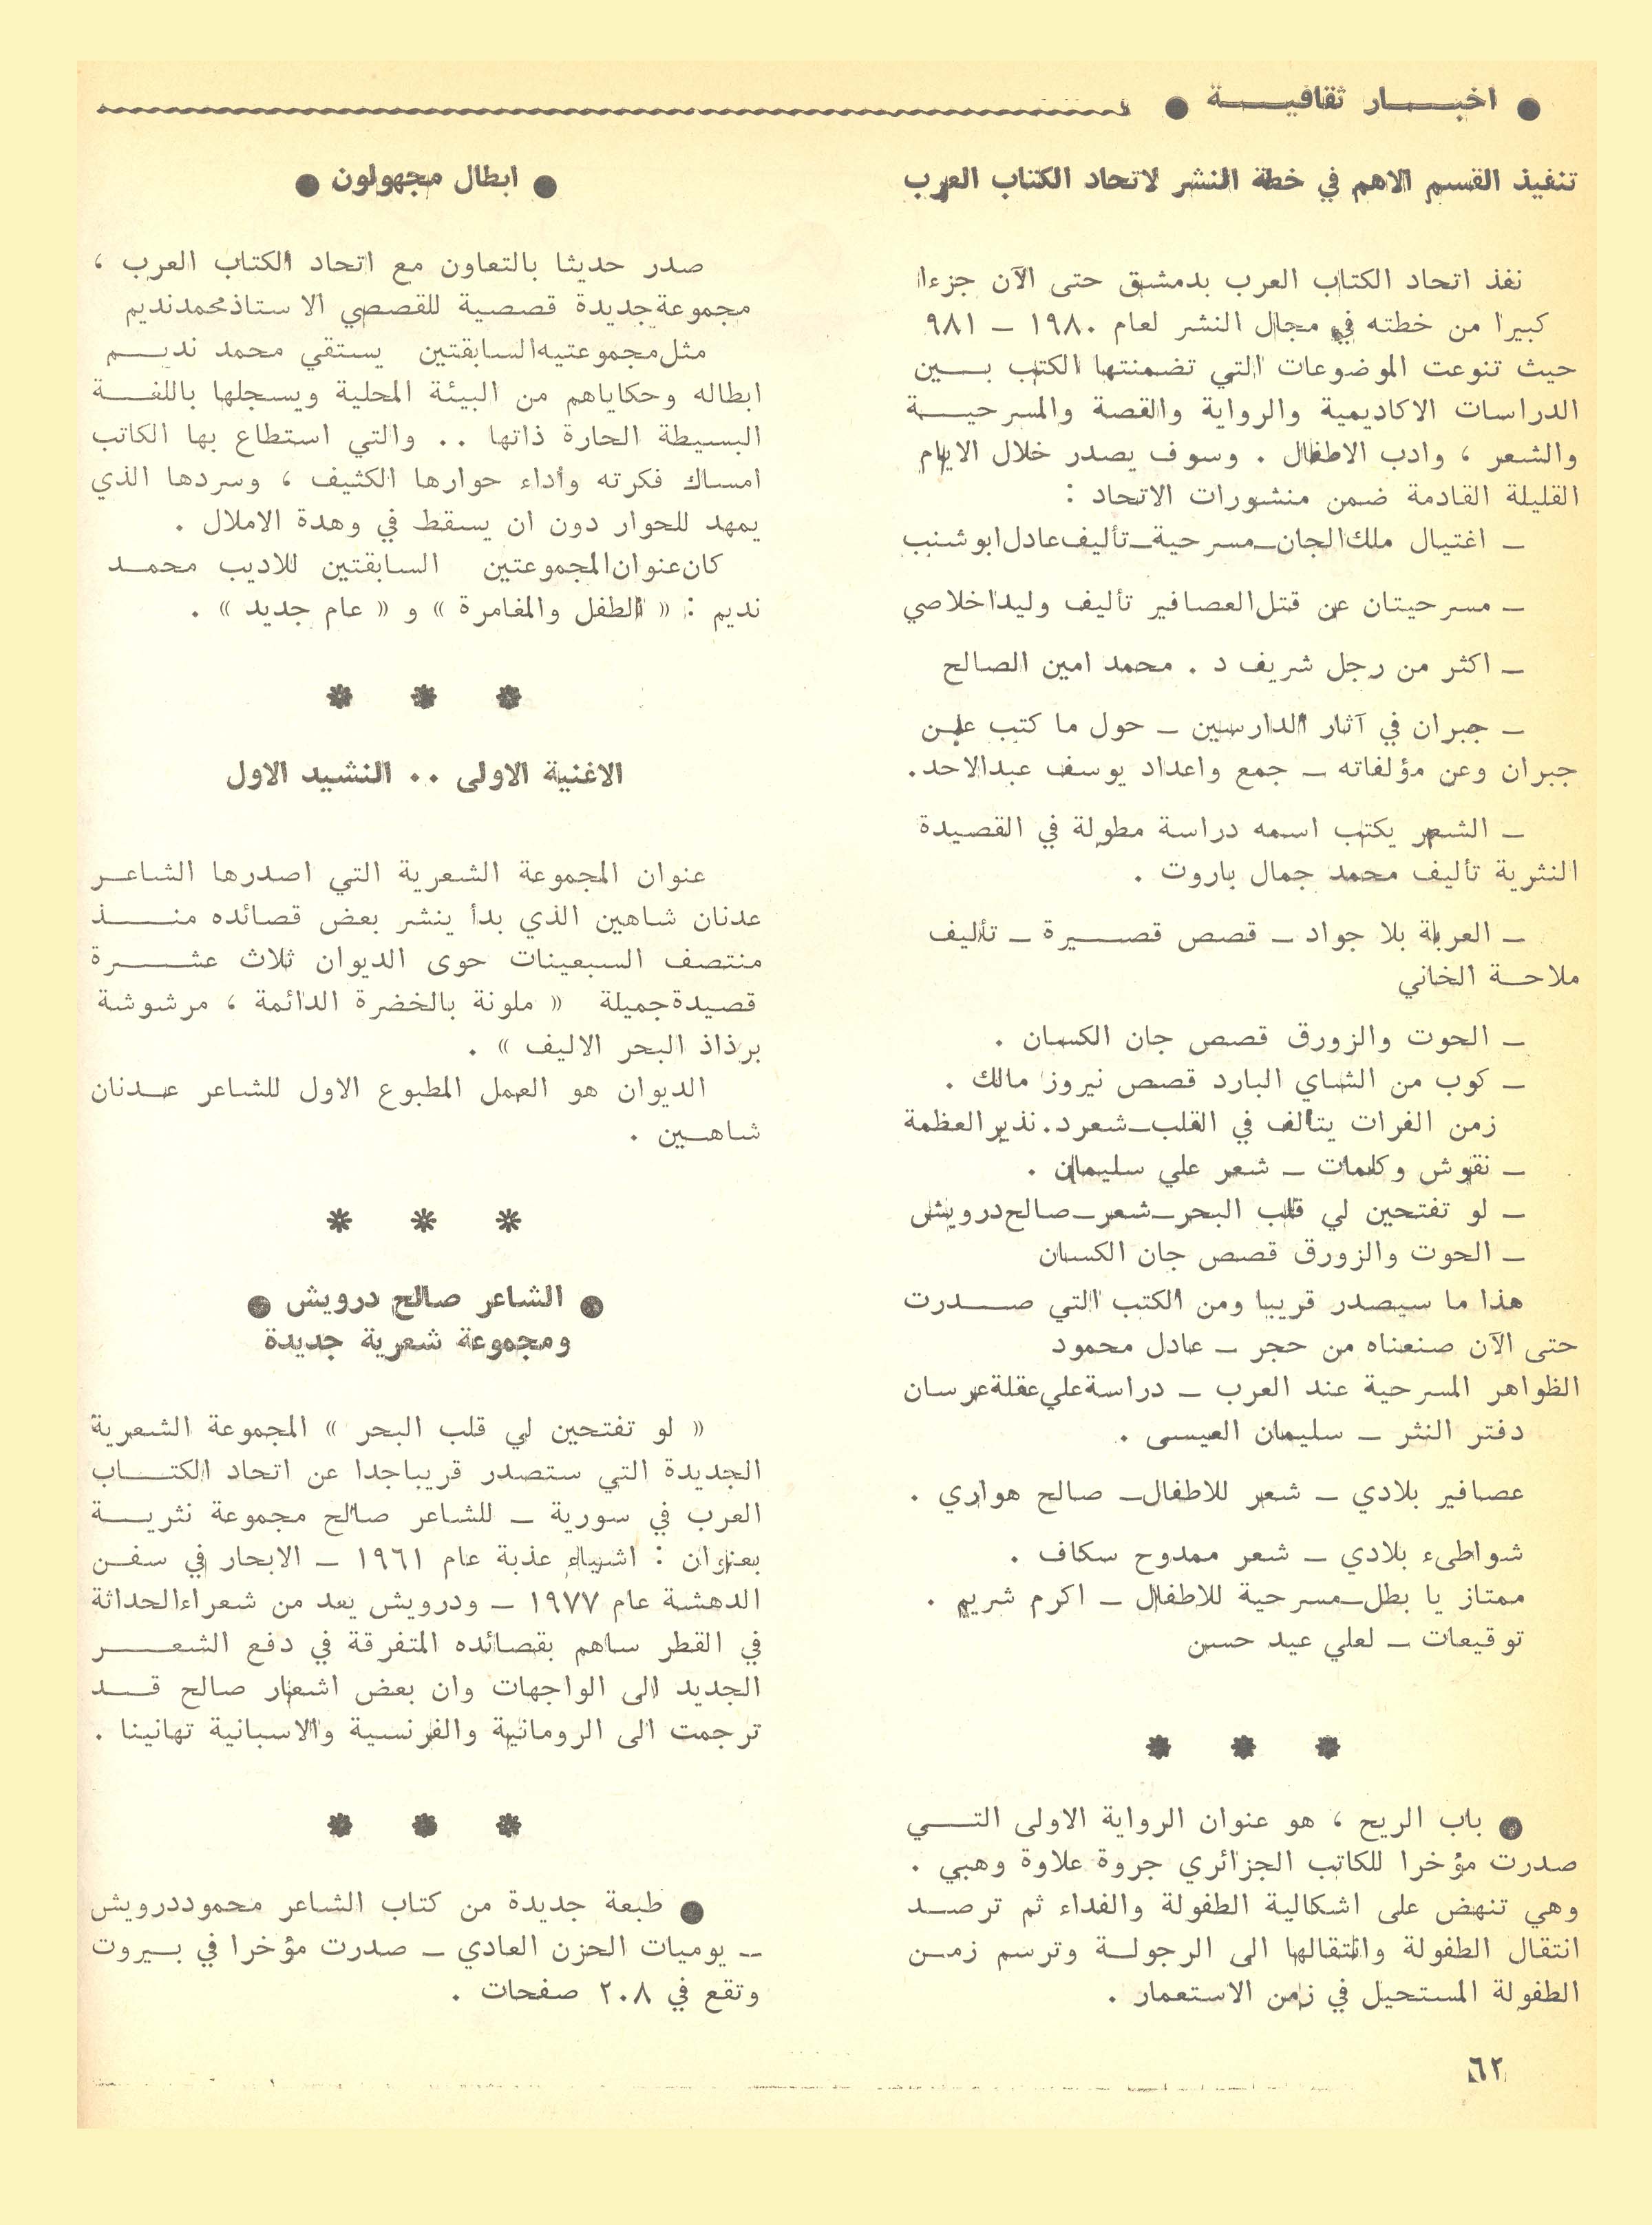 ● اخبـــار ثقافيـــة ●
تنفيذ القسم الاهم في خطة النشر لاتحاد الكتاب العرب
نفذ اتحاد الكتاب العرب بدمشق حتى الآن جزءا
كبيرا من خطته في مجال النشر لعام ١٩٨٠ – ٩٨١
حيث تنوعت الموضوعات التي تضمنتها الكتب بـــين
الدراسات الاكاديمية والرواية والقصة والمسرحيـــة
والشعر ، وادب الاطفال . وسوف يصدر خلال الايام
القليلة القادمة ضمن منشورات الاتحاد :
– اغتيال ملك الجان – مسرحية – تأليف عادل ابو شنب
– مسرحيتان عن قتل العصافير تأليف وليد اخلاصي
– اكثر من رجل شريف د . محمد امين الصالح
– جبران في آثار الدارسين – حول ما كتب عـن
جبران وعن مؤلفاته – جمع واعداد يوسف عبدالاحد.
– الشعر يكتب اسمه دراسة مطولة في القصيدة
النثرية تأليف محمد جمال باروت .
– العربة بلا جواد – قصص قصـــيرة – تأليف
ملاحـة الخاني
– الحوت والزورق قصص جان الكسان .
– كوب من الشاي البارد قصص نيروز مالك .
زمن الفرات يتألف في القلب – شعر د. نذير العظمة
– نقوش وكلمات – شعر علي سليمان .
– لو تفتحين لي قلب البحر – شعر – صالح درويش
– الحوت والزورق قصص جان الكسان
هذا ما سيصدر قريبا ومن الكتب التي صـــدرت
حتى الآن صنعناه من حجر – عادل محمود
الظواهر المسرحية عند العرب – دراسة علي عقلة عرسان
دفتر النثر – سليمان العيسى .
عصافير بلادي – شعر للاطفال – صالح هواري .
شواطىء بلادي – شعر ممدوح سكاف .
ممتاز يا بطل – مسرحية للاطفال – اكرم شريم .
توقيعات – لعلي عيد حسن
* * *
● باب الريح ، هو عنوان الرواية الاولى التـــي
صدرت مؤخرا للكاتب الجزائري جروة علاوة وهبي .
وهي تنهض على اشكالية الطفولة والفداء ثم ترصـد
انتقال الطفولة وانتقالها الى الرجولـة وترسم زمـن
الطفولة المستحيل في زمن الاستعمار .
● ابطال مجهولون ●
صدر حديثا بالتعاون مع اتحاد الكتاب العرب ،
مجموعة جديدة قصصية للقصصي الاستاذ محمد نديم
مثل مجموعتيه السابقتين يستقي محمد نديـــم
ابطاله وحكاياهم من البيئة المحلية ويسجلها باللغـــة
البسيطة الحارة ذاتها .. والتي استطاع بها الكاتب
امساك فكرته وأداء حوارها الكثيف ، وسردها الذي
يمهد للحوار دون ان يسقط في وهدة الاملال .
كان عنوان المجموعتين السابقتين للاديب محمـد
نديم : « الطفل والمغامرة » و « عام جديد » .
* * *
الاغنية الاولى .. النشيد الاول
عنوان المجموعة الشعرية التي اصدرها الشاعـر
عدنان شاهين الذي بدأ ينشر بعض قصائده منـــذ
منتصف السبعينات حوى الديوان ثلاث عشـــرة
قصيدة جميلة « ملونة بالخضرة الدائمة ، مرشوشة
برذاذ البحر الاليف » .
الديوان هو العمل المطبوع الاول للشاعر عـدنان
شاهـين .
* * *
● الشاعر صالح درويش ●
ومجموعة شعرية جديدة
« لو تفتحين لي قلب البحر » المجموعة الشعرية
الجديدة التي ستصدر قريبا جدا عن اتحاد الكتـــاب
العرب في سورية – للشاعر صالح مجموعة نثريـــة
بعنوان : اشياء عذبة عام ١٩٦١ – الابحار في سفـن
الدهشة عام ١٩٧٧ – ودرويش يعد من شعراء الحداثة
في القطر ساهم بقصائده المتفرقة في دفع الشعـــر
الجديد الى الواجهات وان بعض اشعار صالح قـــد
ترجمت الى الرومانية والفرنسية والاسبانية تهانينا .
* * *
● طبعة جديدة من كتاب الشاعر محمود درويش
– يوميات الحزن العادي – صدرت مؤخرا في بـيروت
وتقع في ٢٠٨ صفحات .
٦٢